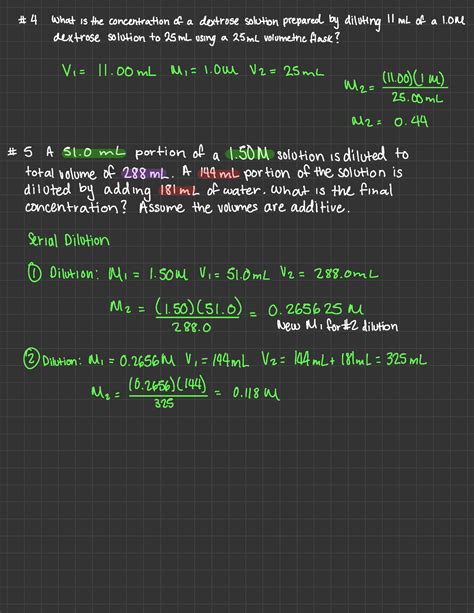 #4 What is the concentration of a dextrose solution prepared by diluting 11 mL of a 1.0M
dextrose solution to 25mL using a 25mL volumetric flask?
V₁ = 11.00 mL M₁ = 1.0M V₂ = 25mL
M₂ = (11.00)(1 M) / 25.00 mL
M₂ = 0.44
#5 A 51.0 mL portion of a 1.50M solution is diluted to
total volume of 288 mL. A 144 mL portion of the solution is
diluted by adding 181 mL of water. What is the final
concentration? Assume the volumes are additive.
Serial Dilution
① Dilution: M₁ = 1.50M V₁ = 51.0mL V₂ = 288.0mL
M₂ = (1.50)(51.0) / 288.0 = 0.265625 M
New M₁ for #2 dilution
② Dilution: M₁ = 0.2656M V₁ = 144mL V₂ = 144mL + 181mL = 325mL
M₂ = (0.2656)(144) / 325 = 0.118 M